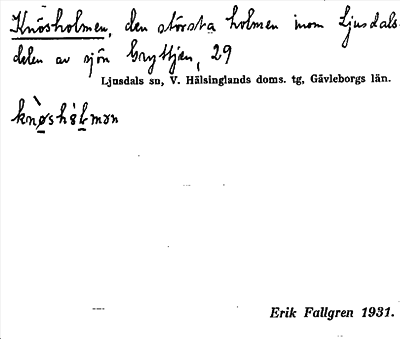 Knösholmen, den största holmen inom Ljusdals-
delen av sjön Gryttjen, 29
Ljusdals sn, V. Hälsinglands doms. tg, Gävleborgs län.
Erik Fallgren 1931.